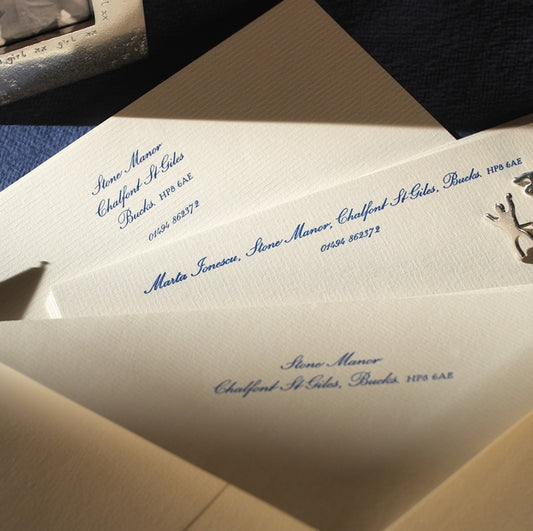 girl xx girl xx
Stone Manor
Chalfont St Giles
Bucks. HP8 6AE
01494 862372
Marta Ionescu, Stone Manor, Chalfont St Giles, Bucks. HP8 6AE
01494 862372
Stone Manor
Chalfont St Giles, Bucks. HP8 6AE